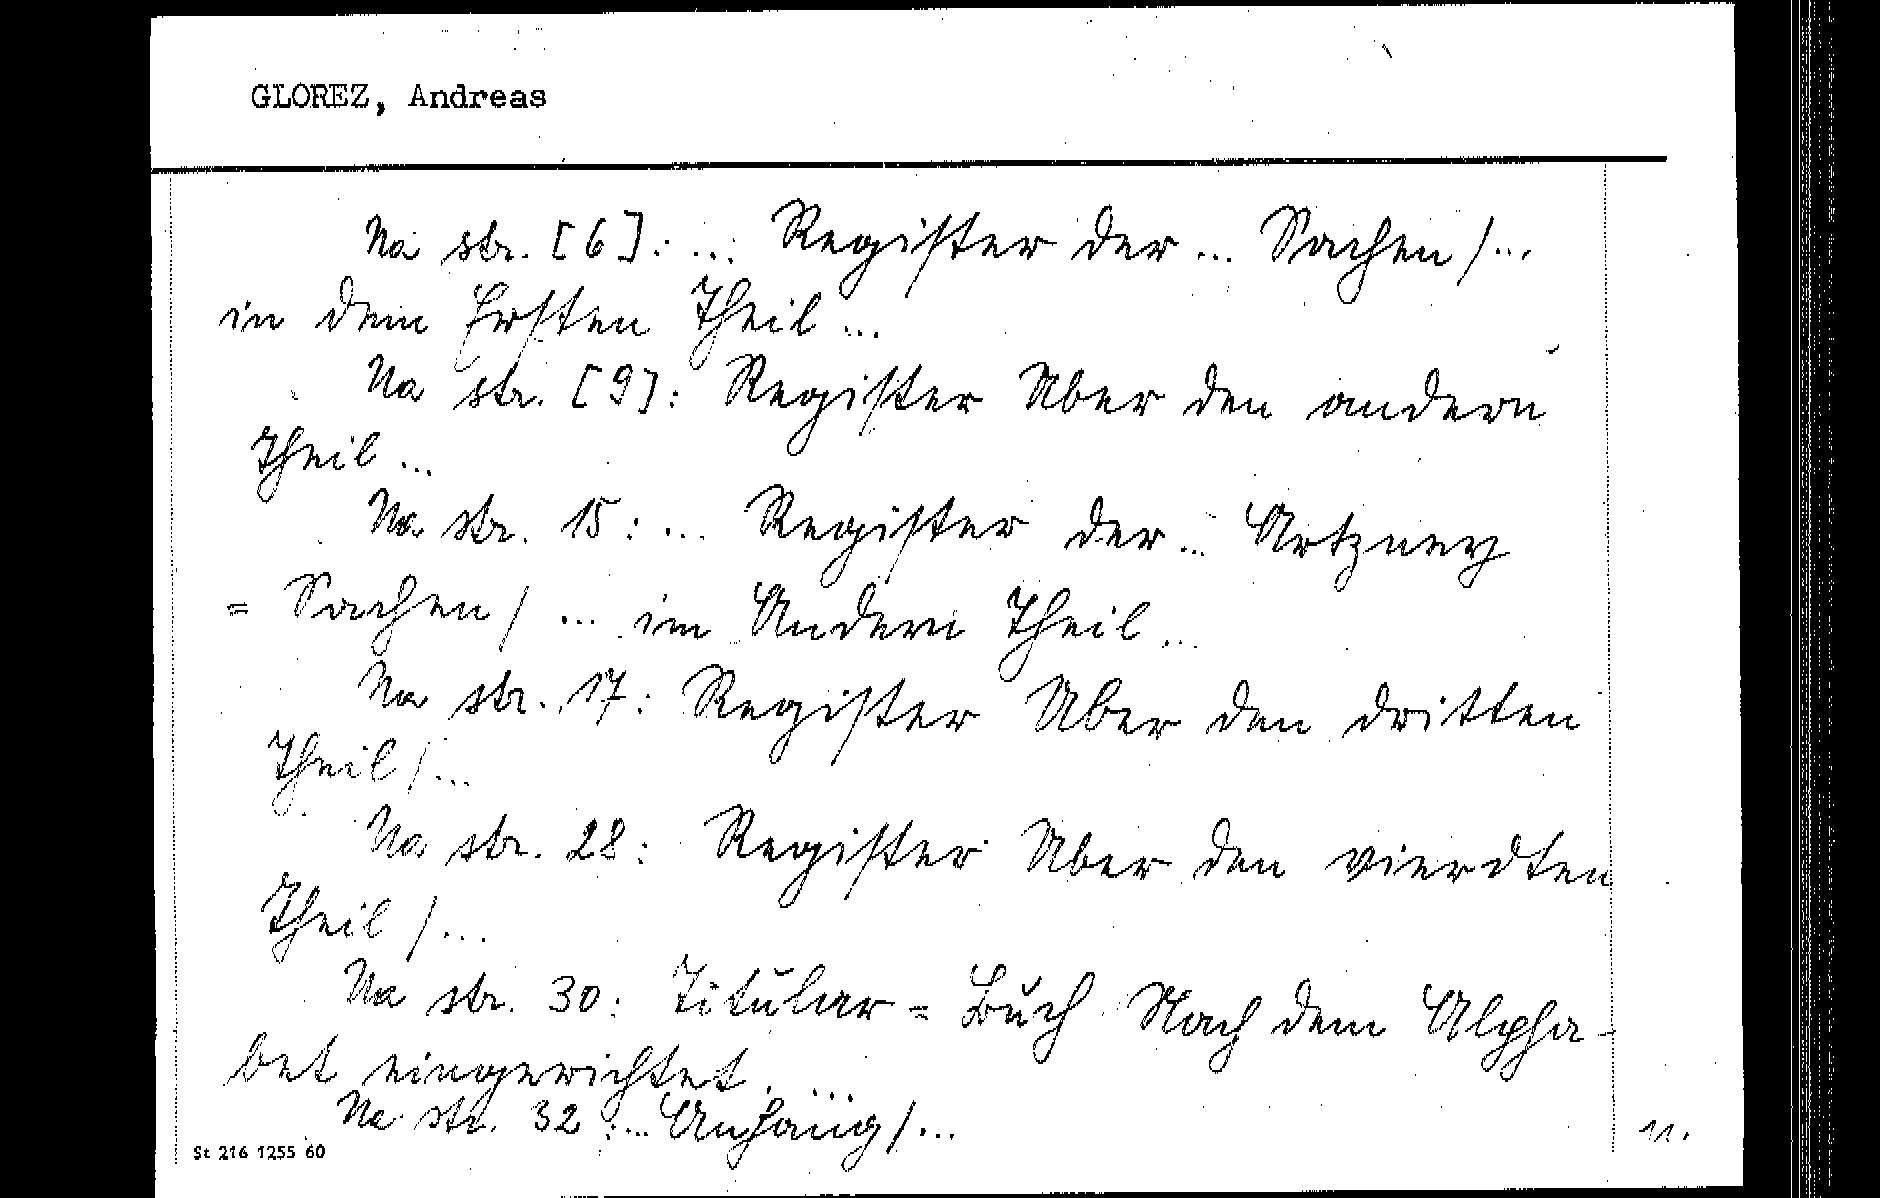 GLOREZ, Andreas
Na str. [6]: ... Register der ... Sachen/...
in dem Ersten Theil...
Na str. [9]: Register Uber den andern
Theil...
Na str. 15: ... Register der... Artzney
= Sachen/ ... im Andern Theil...
Na str. 17: Register Uber den dritten
Theil/...
Na str. 28: Register Uber den vierdten
Theil/...
Na str. 30: Titular = Buch Nach dem Alpha-
bet eingerichtet. ...
Na str. 32: ... Anhang/...
St 216 1255 60
11.